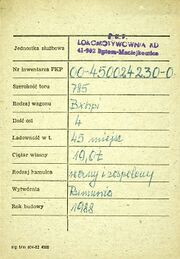 P.K.P.
Jednostka służbowa LOKOMOTYWOWNIA KD
41-902 Bytom-Maciejkowice
Nr inwentarza PKP 00-450024230-0
Szerokość toru 785
Rodzaj wagonu Bxhpi
Ilość osi 4
Ładowność w t. 45 miejsc
Ciężar własny 19,0t
Rodzaj hamulca ręczny i zespolony
Wytwórnia Rumunia
Rok budowy 1988